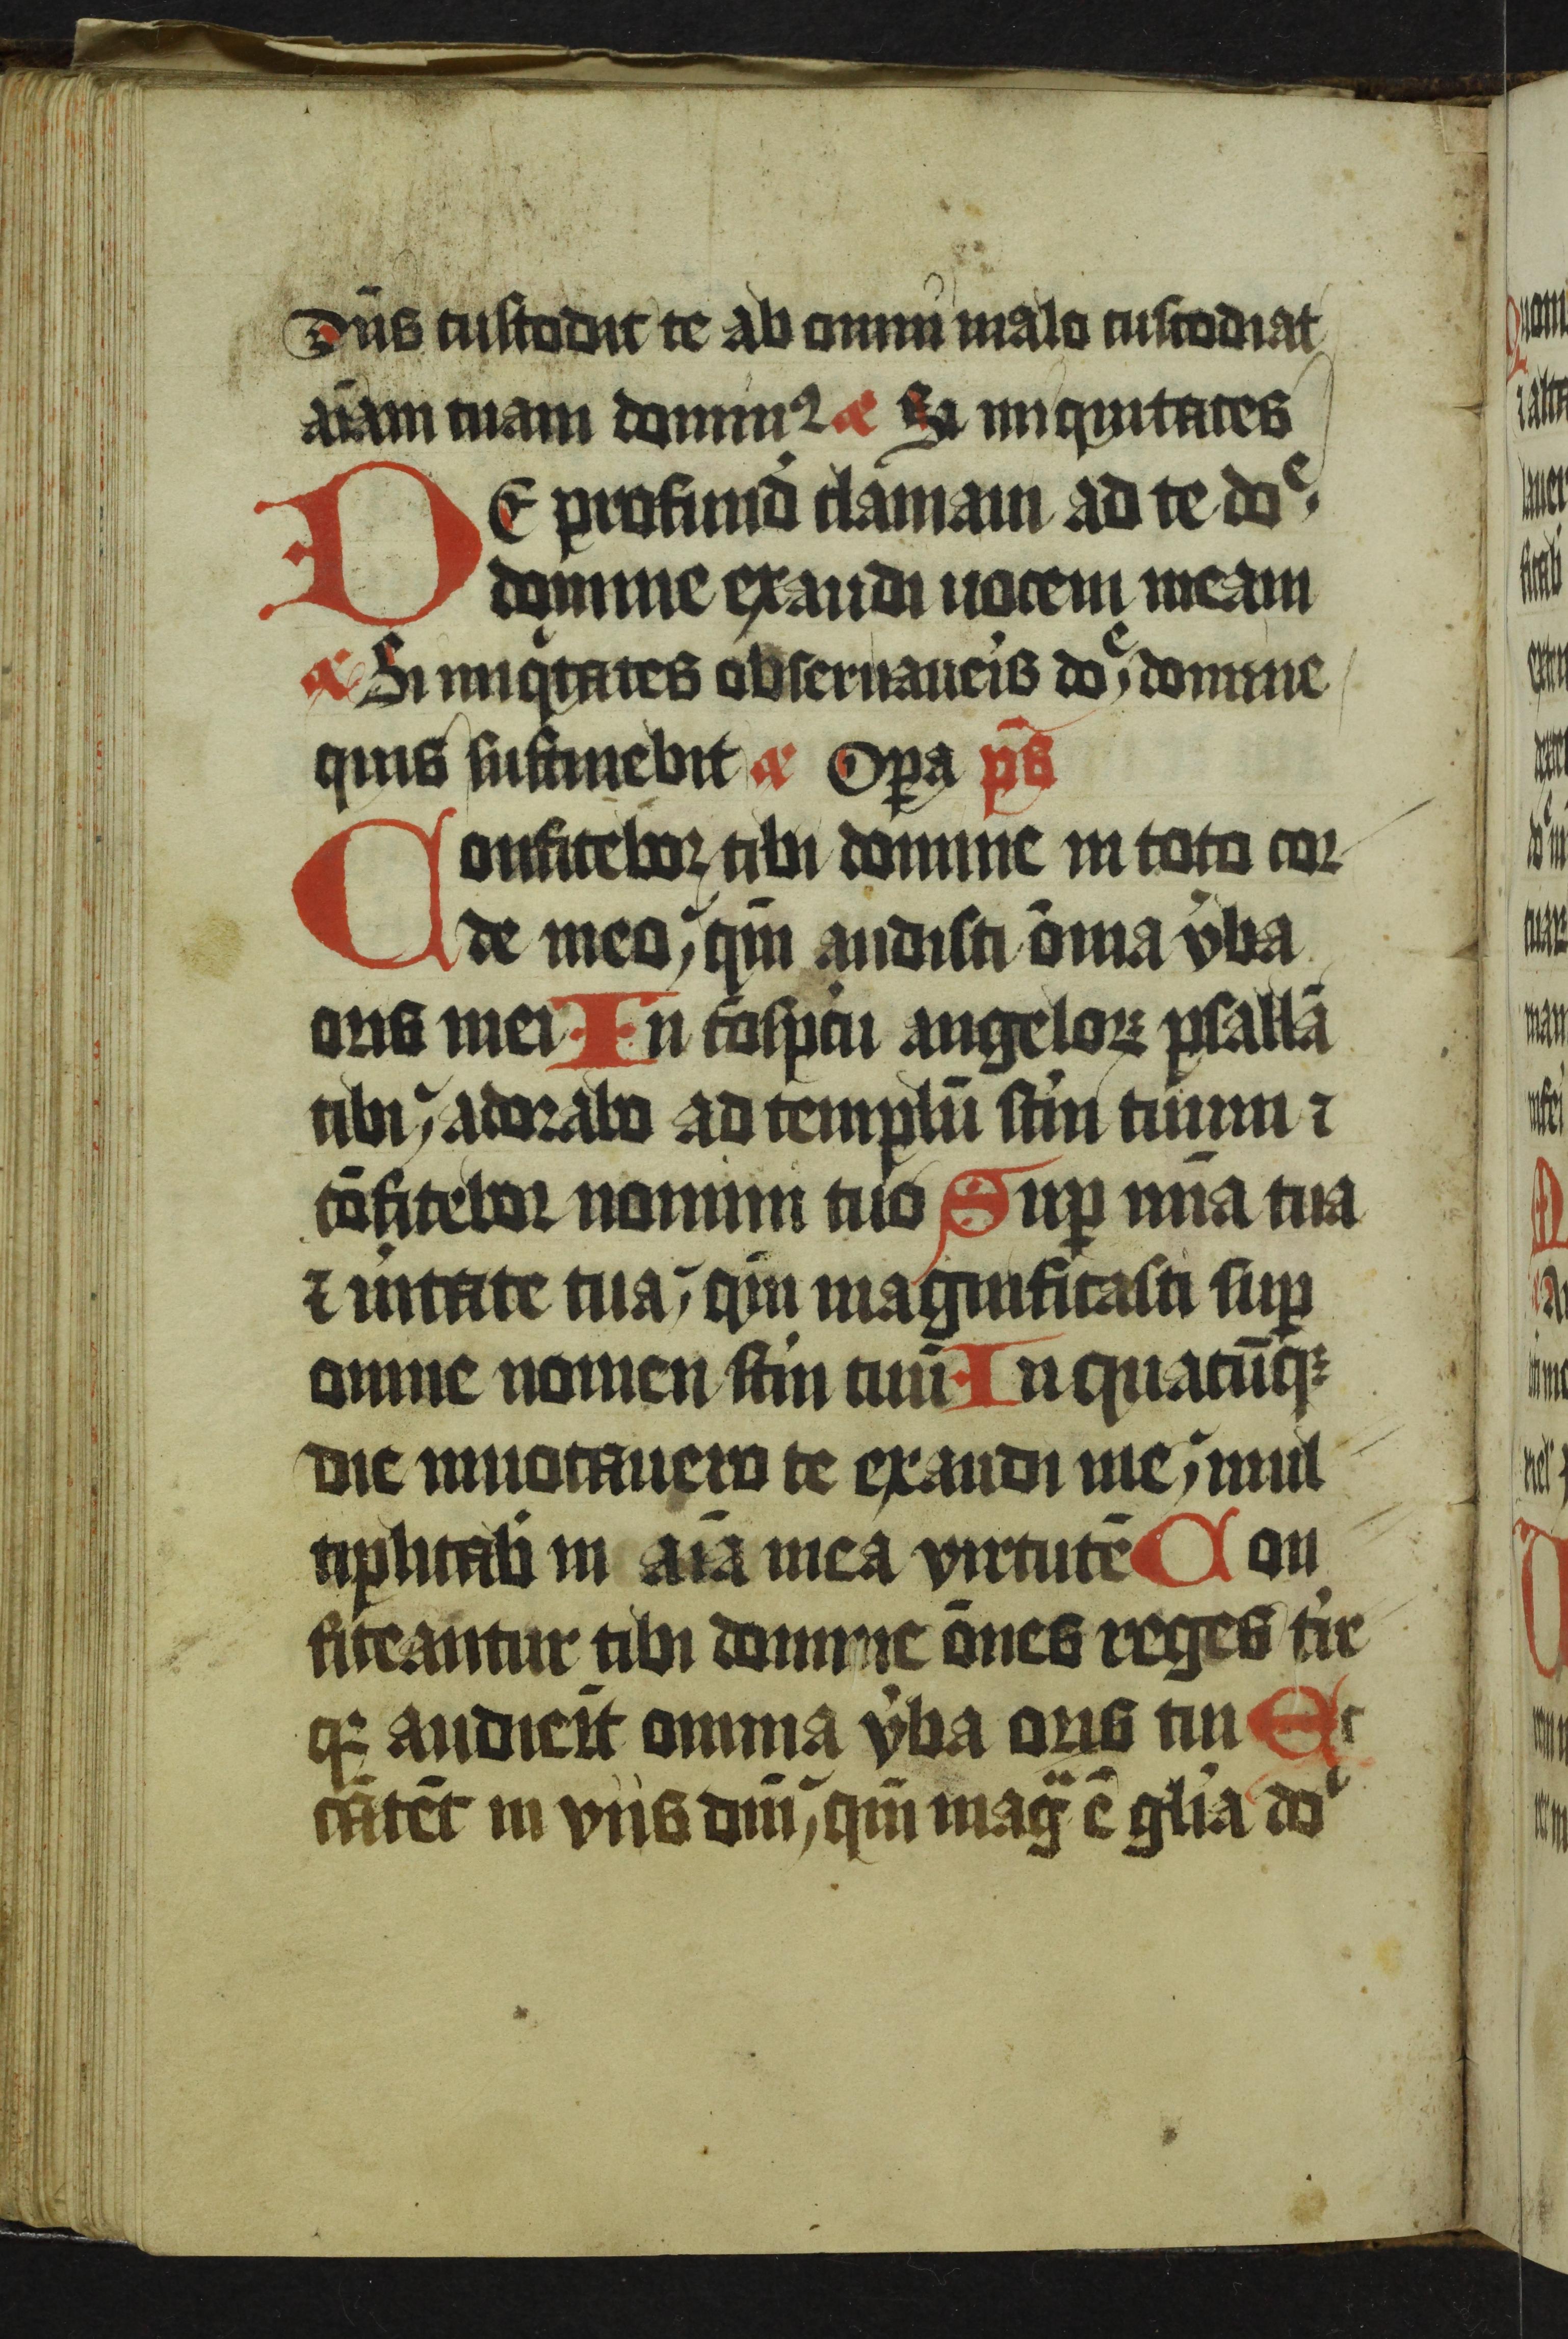 Dn̄s custodit te ab omni malo custodiat
aīam tuam dominꝰ a͞ Si iniquitates
DE profund̕ clāmaui ad te doᵉ.
domine exaudi uocem meam
a͞ Si iniqͥtates obseruaueͥs doᵉ, domine
quis sustinebit a͞ Oꝑa p̄s
Confitebor tibi domine in toto cor
de meo, qm̄ audisti ōnia v̕ba
oris mei In cōspcͥu angeloꝝ psallā
tibi, adorabo ad templū sc̄m tuum ⁊
cōfitebor nomini tuo Suꝑ mīa tua
⁊ uͥtate tua, qm̄ magnificasti suꝑ
omne nomen sc̄m tuū In quacūqꝫ
die inuocauero te exaudi me, mul
tiplicab̕ in aīa mea virtutē Con
fiteantur tibi domine ōnes reges t̕re
qꝫ audier̄t omnia v̕ba oris tui Et
cātēt in viis dn̄i, qm̄ magͣ ē gl̕ia doᶦ